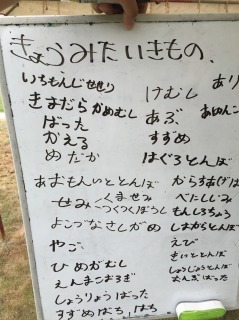 きょうみたいきもの、
いちもんじせせり
きまだらかめむし
ばった
かえる
めだか
けむし
あぶ
すずめ
はぐろとんぼ
あり
あおもんいととんぼ
せみ くませみ
つくつくぼうし
よこづなさしがめ
やご
ひめがむし
えんまこおろぎ
しょうりょうばった
すずめばち はち
べにしじみ
もんしろちょう
しおからとんぼ
えび
きいととんぼ
しょうじょうとんぼ
おんぶばった